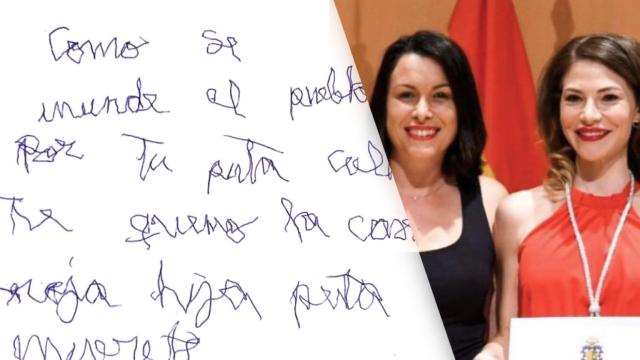 Como se
inunde el pueblo
Por Tu puta cul
Te quemo la casa
roja hija puta
muerete